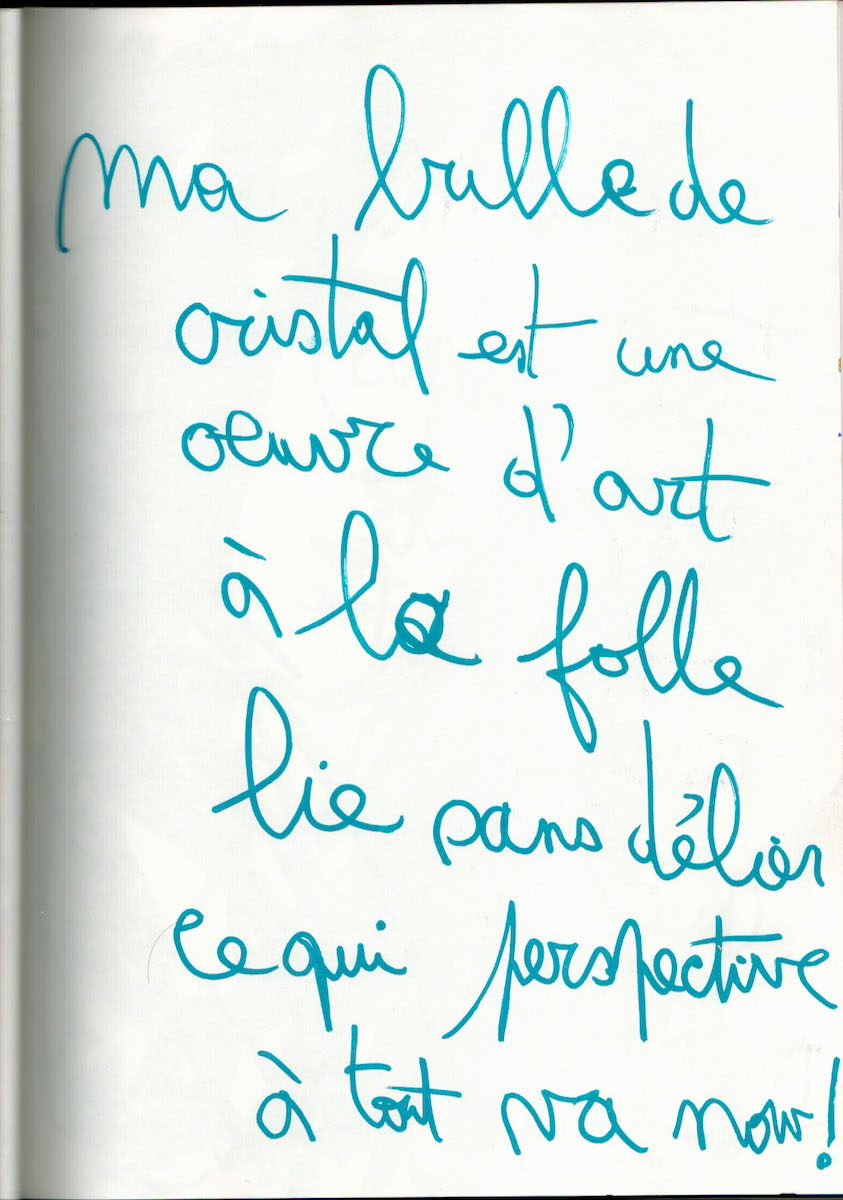 ma bulle de
cristal est une
oeuvre d'art
à la folle
lie sans délier
ce qui perspective
à tout va now!